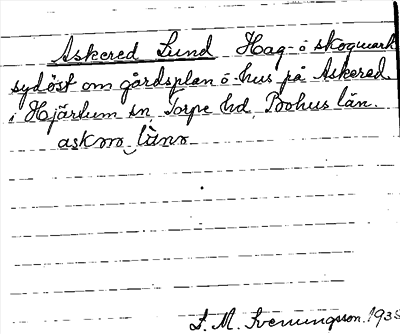 Askered Lund Hag- o skogmark
sydöst om gårdsplan o hus på Askered.
i Hjärtum sn, Torpe hd, Bohus län.
L. M. Svenungsson. 193